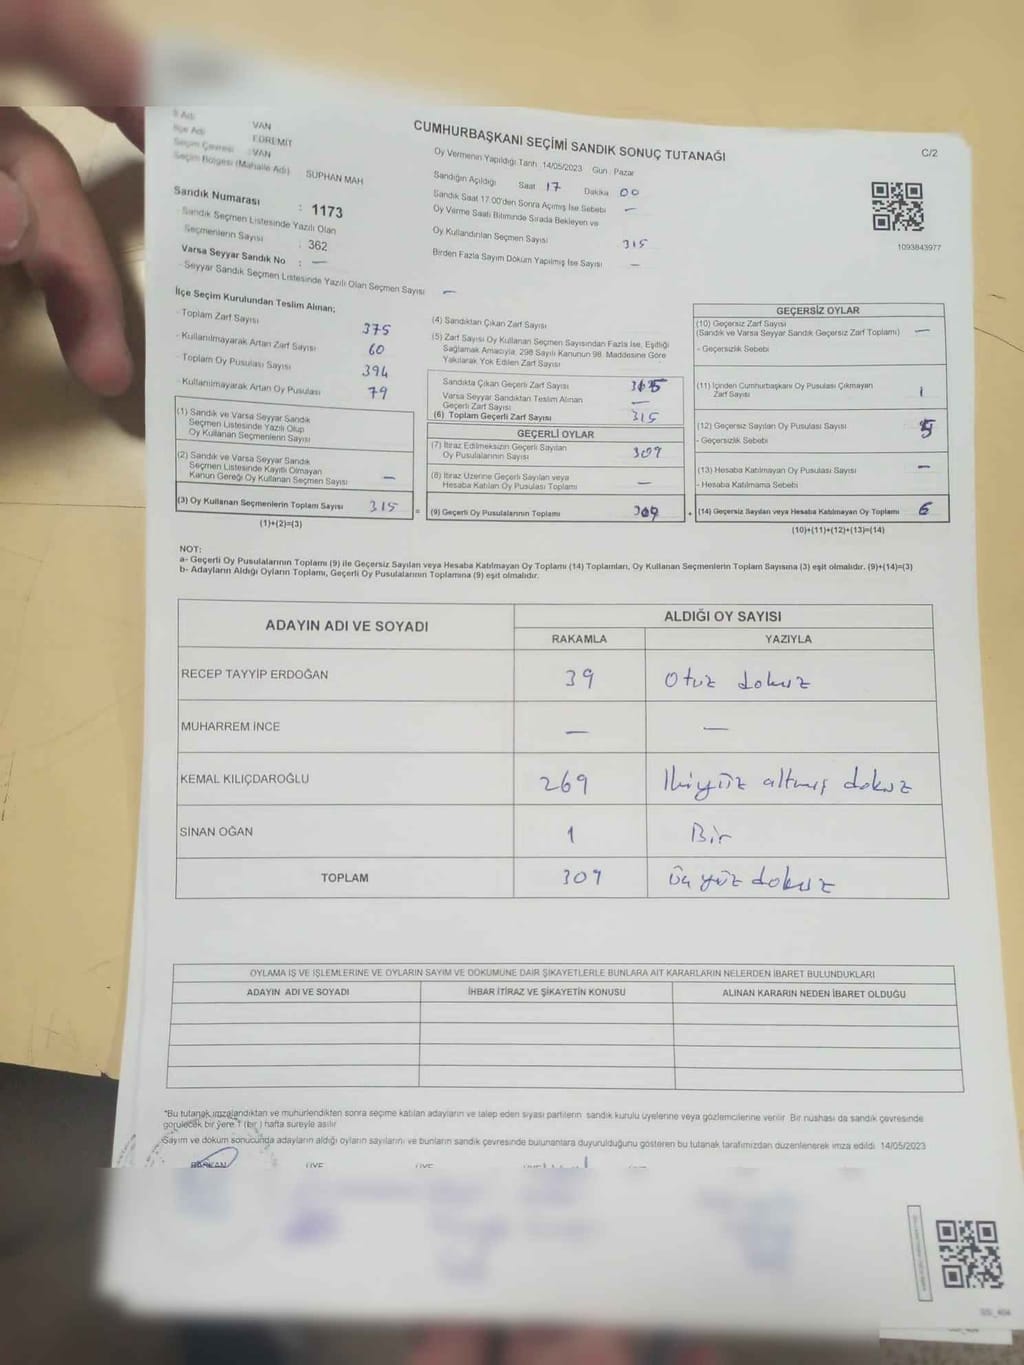 İl Adı VAN
İlçe Adı EDREMİT
Seçim Çevresi VAN
Seçim Bölgesi (Mahalle Adı) SUPHAN MAH
Sandık Numarası : 1173
Sandık Seçmen Listesinde Yazılı Olan
Seçmenlerin Sayısı : 362
Varsa Seyyar Sandık No : —
Seyyar Sandık Seçmen Listesinde Yazılı Olan Seçmen Sayısı —
CUMHURBAŞKANI SEÇİMİ SANDIK SONUÇ TUTANAĞI
C/2
Oy Vermenin Yapıldığı Tarih 14/05/2023 Gün Pazar
Sandığın Açıldığı Saat 17 Dakika 00
Sandık Saat 17.00'den Sonra Açılmış İse Sebebi —
Oy Verme Saati Bitiminde Sırada Bekleyen ve
Oy Kullandırılan Seçmen Sayısı 315
Birden Fazla Sayım Döküm Yapılmış İse Sayısı —
1093843977
İlçe Seçim Kurulundan Teslim Alınan;
- Toplam Zarf Sayısı 375
- Kullanılmayarak Artan Zarf Sayısı 60
- Toplam Oy Pusulası Sayısı 394
- Kullanılmayarak Artan Oy Pusulası 79
(1) Sandık ve Varsa Seyyar Sandık
Seçmen Listesinde Yazılı Olup
Oy Kullanan Seçmenlerin Sayısı
(2) Sandık ve Varsa Seyyar Sandık
Seçmen Listesinde Kayıtlı Olmayan
Kanun Gereği Oy Kullanan Seçmen Sayısı —
(3) Oy Kullanan Seçmenlerin Toplam Sayısı 315
(1)+(2)=(3)
=
(4) Sandıktan Çıkan Zarf Sayısı
(5) Zarf Sayısı Oy Kullanan Seçmen Sayısından Fazla İse, Eşitliği
Sağlamak Amacıyla, 298 Sayılı Kanunun 98. Maddesine Göre
Yakılarak Yok Edilen Zarf Sayısı
Sandıkta Çıkan Geçerli Zarf Sayısı
Varsa Seyyar Sandıktan Teslim Alınan
Geçerli Zarf Sayısı —
(6) Toplam Geçerli Zarf Sayısı 315
GEÇERLİ OYLAR
(7) İtiraz Edilmeksizin Geçerli Sayılan
Oy Pusulalarının Sayısı 309
(8) İtiraz Üzerine Geçerli Sayılan veya
Hesaba Katılan Oy Pusulası Toplamı —
(9) Geçerli Oy Pusulalarının Toplamı 309
+
GEÇERSİZ OYLAR
(10) Geçersiz Zarf Sayısı
(Sandık ve Varsa Seyyar Sandık Geçersiz Zarf Toplamı) —
- Geçersizlik Sebebi
(11) İçinden Cumhurbaşkanı Oy Pusulası Çıkmayan
Zarf Sayısı 1
(12) Geçersiz Sayılan Oy Pusulası Sayısı 5
- Geçersizlik Sebebi
(13) Hesaba Katılmayan Oy Pusulası Sayısı —
- Hesaba Katılmama Sebebi
(14) Geçersiz Sayılan veya Hesaba Katılmayan Oy Toplamı 6
(10)+(11)+(12)+(13)=(14)
NOT:
a- Geçerli Oy Pusulalarının Toplamı (9) ile Geçersiz Sayılan veya Hesaba Katılmayan Oy Toplamı (14) Toplamları, Oy Kullanan Seçmenlerin Toplam Sayısına (3) eşit olmalıdır. (9)+(14)=(3)
b- Adayların Aldığı Oyların Toplamı, Geçerli Oy Pusulalarının Toplamına (9) eşit olmalıdır.
ADAYIN ADI VE SOYADI
ALDIĞI OY SAYISI
RAKAMLA YAZIYLA
RECEP TAYYİP ERDOĞAN 39 Otuz dokuz
MUHARREM İNCE — —
KEMAL KILIÇDAROĞLU 269 İkiyüz altmış dokuz
SİNAN OĞAN 1 Bir
TOPLAM 309 üç yüz dokuz
OYLAMA İŞ VE İŞLEMLERİNE VE OYLARIN SAYIM VE DÖKÜMÜNE DAİR ŞİKAYETLERLE BUNLARA AİT KARARLARIN NELERDEN İBARET BULUNDUKLARI
ADAYIN ADI VE SOYADI İHBAR İTİRAZ VE ŞİKAYETİN KONUSU ALINAN KARARIN NEDEN İBARET OLDUĞU
*Bu tutanak imzalandıktan ve mühürlendikten sonra seçime katılan adayların ve talep eden siyasi partilerin sandık kurulu üyelerine veya gözlemcilerine verilir. Bir nüshası da sandık çevresinde
görülecek bir yere 1 (bir) hafta süreyle asılır.
Sayım ve döküm sonucunda adayların aldığı oyların sayılarını ve bunların sandık çevresinde bulunanlara duyurulduğunu gösteren bu tutanak tarafımızdan düzenlenerek imza edildi. 14/05/2023
BAŞKAN ÜYE ÜYE